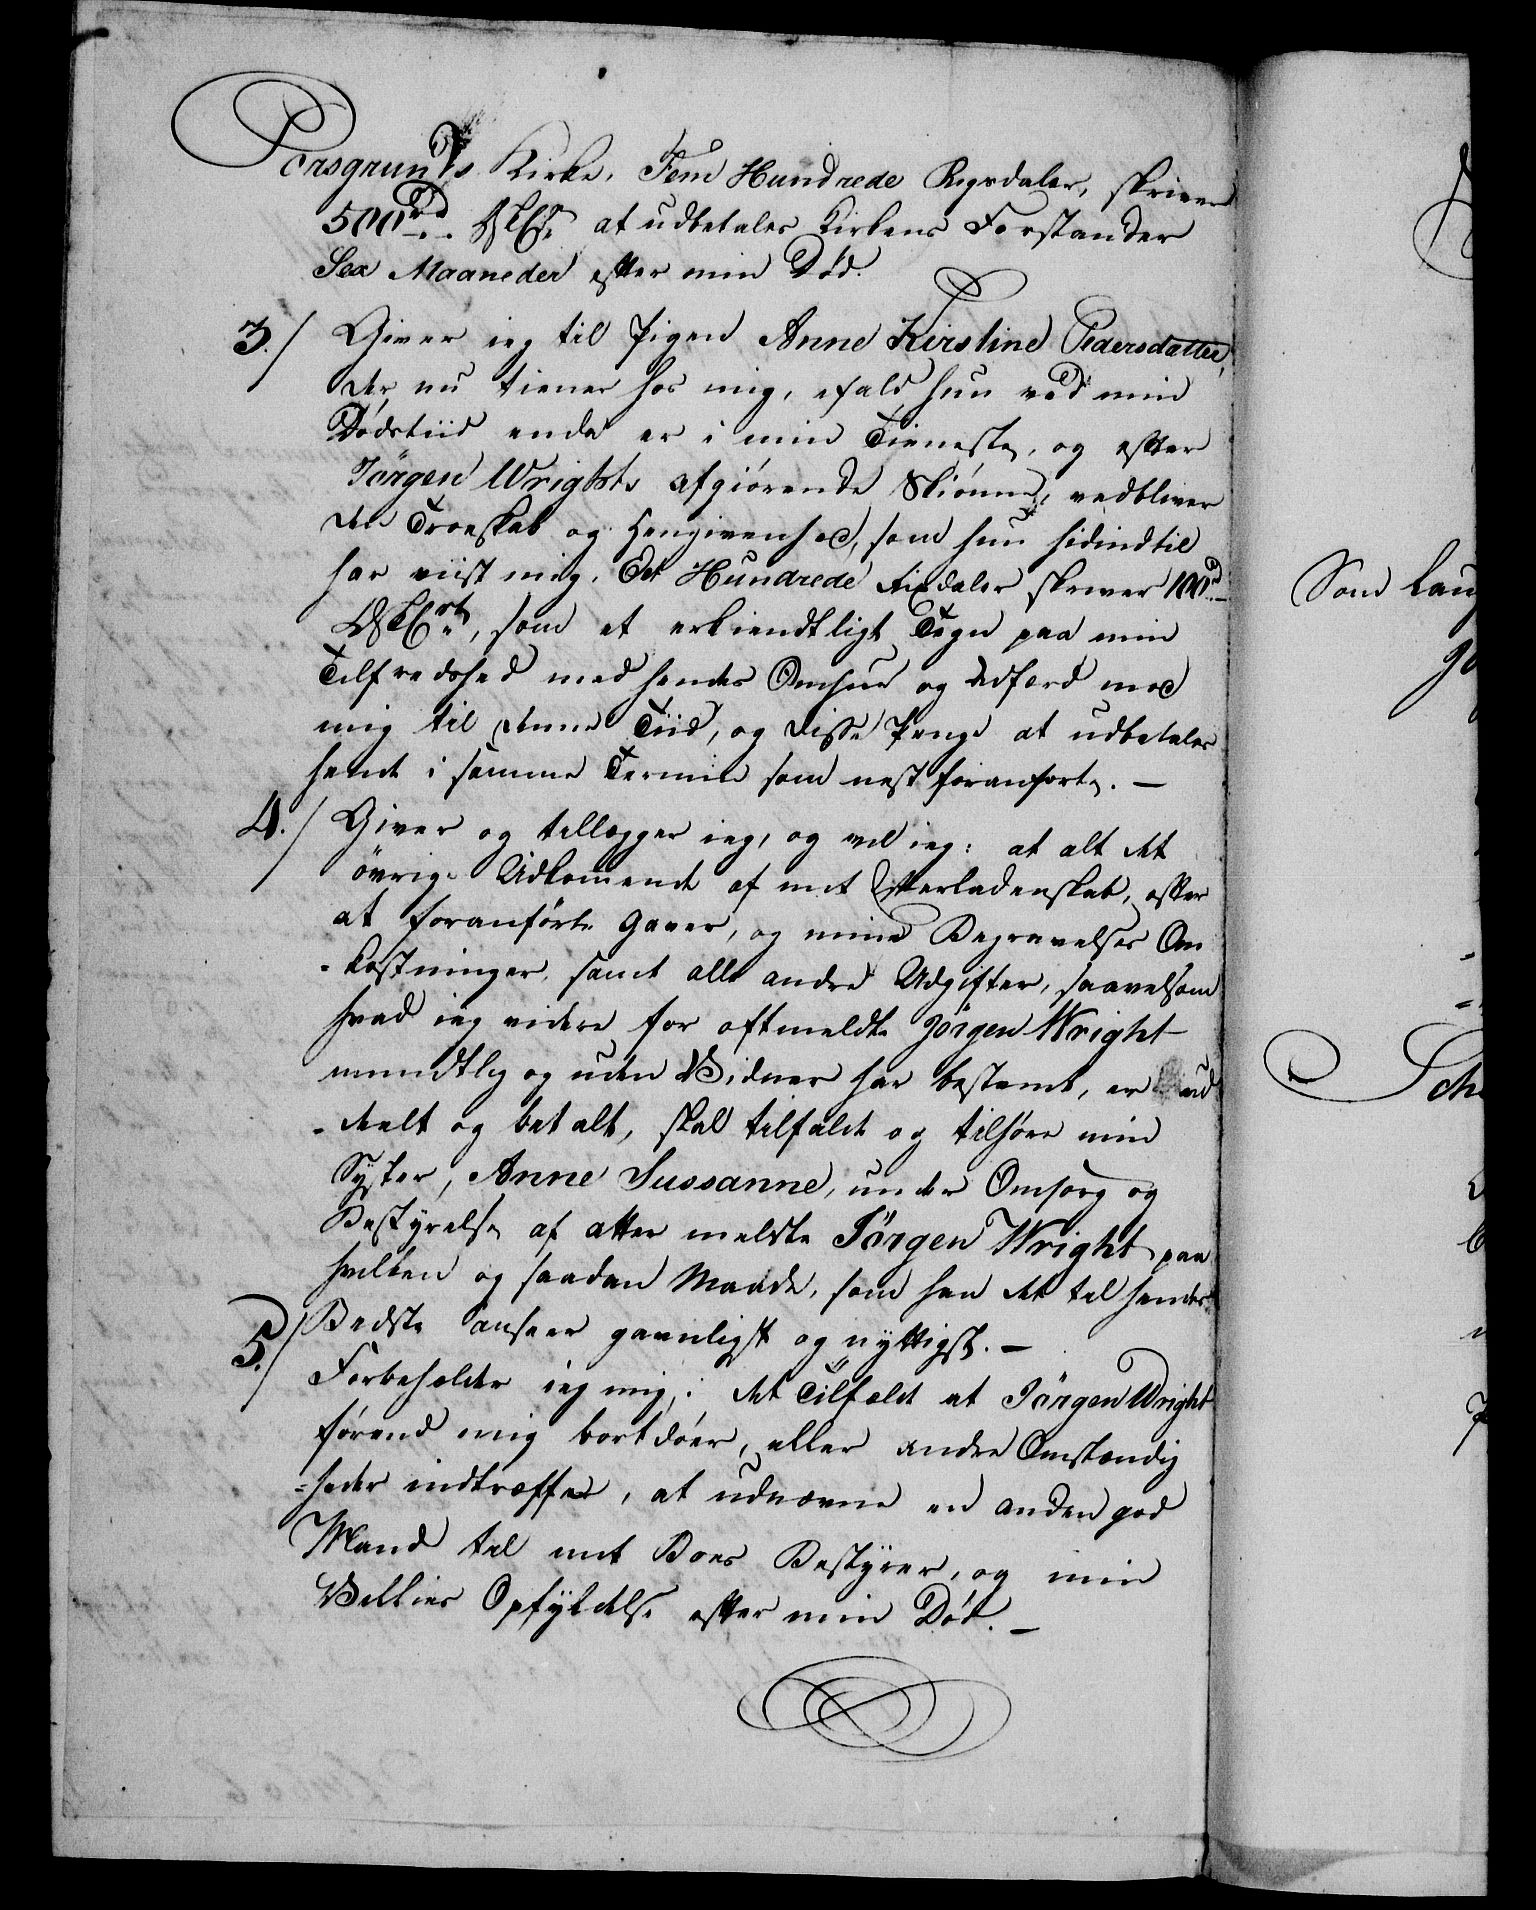 Porsgrunds Kirke, Fem Hundrede Rigsdaler, skriver
500rd DCt. at udbetales Kirkens Forstander
Sex Maaneder efter min Död.
3./ Giver ieg til Pigen Anne Kirstine Pedersdatter,
der nu tiener hos mig, ifald hun ved min
Dödstiid endnu er i min Tieneste, og efter
Jörgen Wrights afgiörende Skiönne, vedbliver
den Troeskab og Hengivenhed, som hun hidindtil
har viist mig, Et Hundrede Rixdaler skriver 100rd
DCrt, som et erkiendtligt Tegn paa min
Tilfredshed med hendes Omhue og Adfærd mod
mig til denne Tiid, og disse Penge at udbetales
hende i samme Termin som nest foranförte. —
4./ Giver og tillægger ieg, og vil ieg: at alt det
övrige Udkommende af mit Efterladenskab, efter
at foranförte Gaver, og mine Begravelses Om
-kostninger, samt alle andre Udgifter, saavelsom
hvad ieg videre for oftmeldte Jörgen Wright
mundtlig og uden Vidner har bestemt, er ud
-deelt og betalt, skal tilfalde og tilhöre min
Syster, Anne Sussanne, under Omsorg og
Bestyrelse af atter meldte Jörgen Wright paa
hvilken og saadan Maade, som han det til hendes
Bedste anseer gavnligst og nyttigst. —
5./ Forbeholder ieg mig, i det Tilfælde at Jörgen Wright
förend mig bortdöer, eller andre Omstændig
=heder indtræffer, at udnævne en anden god
Mand til mit Boes Bestyrer, og min
Villies Opfyldelse efter min Död. —
Som
Sch